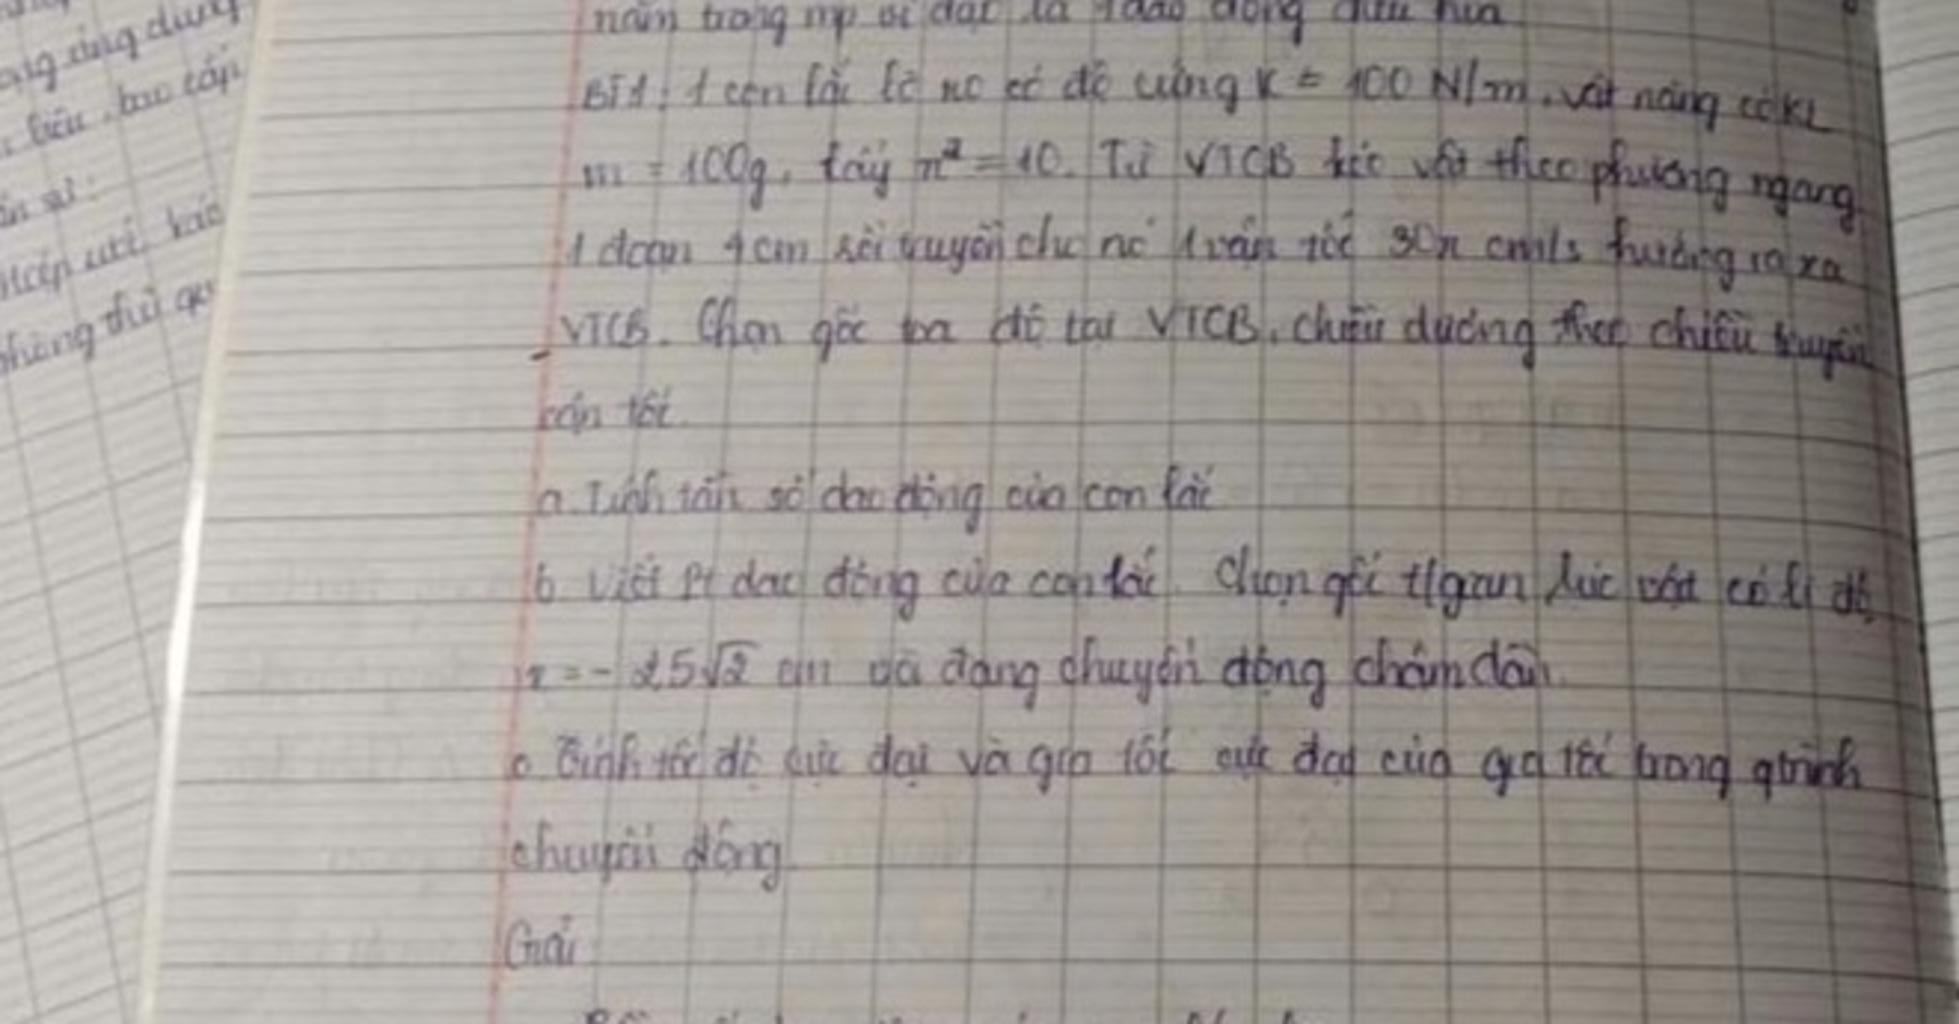 ứng dụng
nằm trong mp
BT1: 1 con lắc lò xo có độ cứng K = 100 N/m, vật nặng có KL
m = 100g, lấy π² = 10. Từ VTCB kéo vật theo phương ngang
1 đoạn 4cm rồi truyền cho nó 1 vận tốc 30π cm/s hướng ra xa
VTCB. Chọn gốc toạ độ tại VTCB, chiều dương theo chiều truyền
vận tốc
a. Tính tần số dao động của con lắc
b. Viết Pt dao động của con lắc. Chọn gốc t/gian lúc vật có li độ
x = - 2,5√2 cm và đang chuyển động chậm dần
c. Tính tốc độ cực đại và gia tốc cực đại của gia tốc trong qtrình
chuyển động
Giải